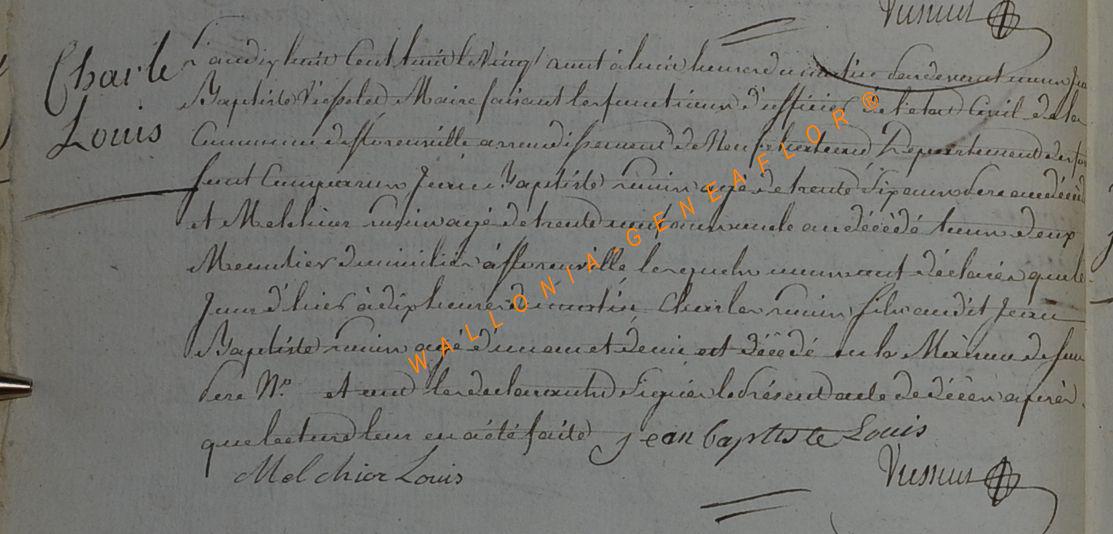 Vusseur
Charle
Louis
L'an dix huit cent huit le vingt aout à huit heures du matin pardevant nous Jean
Baptiste Maire faisant les fonctions d'officier de l'état Civil de la
Commune de florenville arrondissement de Neufchateau Département des for
sont Comparus Jean Baptiste Louis agé de trente six ans Pere au décédé
et Melchior Louis agé de trente neuf ans oncle au décédé tous deux
Meunier domiciliés à florenville lesquels nous ont déclarés que le
Jour d'hier à dix heures du matin Charles Louis fils audit Jean
Baptiste Louis agé d'un an et demi est décédé en la Maison de son
Pere N.º et ont les declarants Signés le présent acte de décès après
que lecture leur en a été faite jean baptiste Louis
Melchior Louis
Vusseur
WALLONIA-GENEAFLOR®